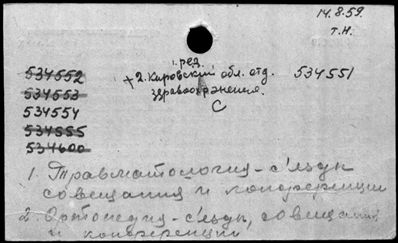 14.8.59.
т.н.
1. ред.
534552 +2. Кировский обл. отд. 534551
534553 здравоохранения.
534554 С
534555
534600
1. Травматология - съезды,
совещания и конференции
2. Ортопедия - съезды, совещания
и конференции